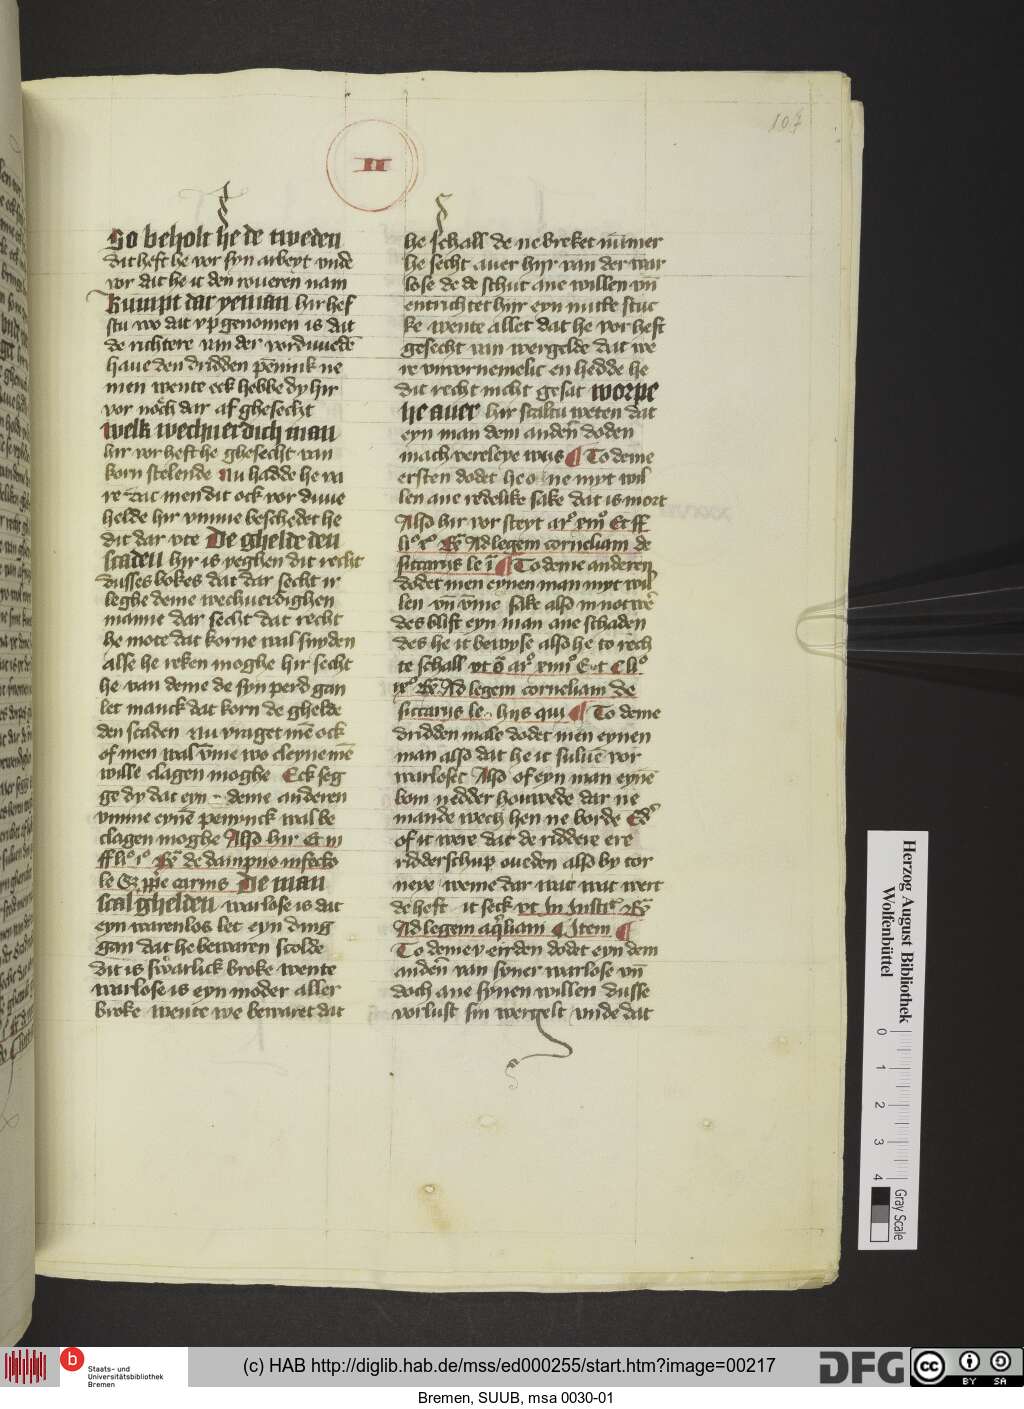 107
II
So beholt he de tweden
dit heft he vor syn arbeyt vnde
vor dit he it den roueren nam
Kumpt dar yeman hir hef
stu wo dat vpgenomen is dat
de richtere van der vorduuede
haue den dridden penink ne
men wente eck hebbe dy hir
vor noch dar af ghesecht
welk wechuerdich man
hir vor heft he ghesecht van
korn stelende Nu hadde he va
re dat men dit ock vor duue
helde hir vmme beschedet he
dit dar vte De ghelde den
scaden hir is yeghen dit recht
dusses bokes dat dar secht ir
leghe deme wechuerdighen
manne dar secht dat recht
he mote dat korne wal snyden
alse he reken moghe hir secht
he van deme de syn perd gan
let manck dat korn de ghelde
den scaden Nu vraget me ock
of men wal vme wo cleyne me
wille clagen moghe Eck seg
ge dy dat eyn deme anderen
vmme eyne penynck wal be
clagen moghe Also hir Et in
ff li° i° R de dampno infecto
le
De man
scal ghelden warlose is dat
eyn warenlos let eyn ding
gan dat he bewaren scolde
dit is swarlick broke wente
warlose is eyn moder aller
broke wente we bewaret dat
he schall de ne breket nummer
he secht auer hijr van der war
lose de de schut ane willen vn
entrichtet hijr eyn nutte stuc
ke wente allet dat he vor heft
gesecht van wergelde dat we
re vnvornemelic en hedde he
dit recht nicht gesat worpe
he auer hir scaltu weten dat
eyn man dem anden doden
mach vereleye wijs ¶ To deme
ersten dodet he one myt wil
len ane redelike sake dat is mort
Also hir vor steyt ar° xiiij° Et ff
li° x° R Ad legem corneliam de
siccarijs le i ¶ To deme anderen
dodet men eynen man myt wil
len vn vme sake also in notwe
des blift eyn man ane schaden
des he it bewyse also he to rech
te schall vt ar° xiiij° Et C li°
ix° R Ad legem corneliam de
siccarijs le. hijs qui ¶ To deme
dridden male dodet men eynen
man also dat he it suluen vor
warloset Also of eyn man eyne
bom nedder houwede dar ne
mande wech hen ne borde
of it were dat de riddere ere
ridderschup oueden also by tor
neye weme dar wat wert
de heft it seck vt In Insti R
Ad legem aqliam C Item ¶
To deme veirden dodet eyn dem
anden van syner warlose vn
doch ane synen willen dusse
vorlust sin wergelt vnde dat
Herzog August Bibliothek
Wolfenbüttel
0 1 2 3 4
Gray Scale
b
Staats- und
Universitätsbibliothek
Bremen
(c) HAB http://diglib.hab.de/mss/ed000255/start.htm?image=00217
DFG
cc BY SA
Bremen, SUUB, msa 0030-01